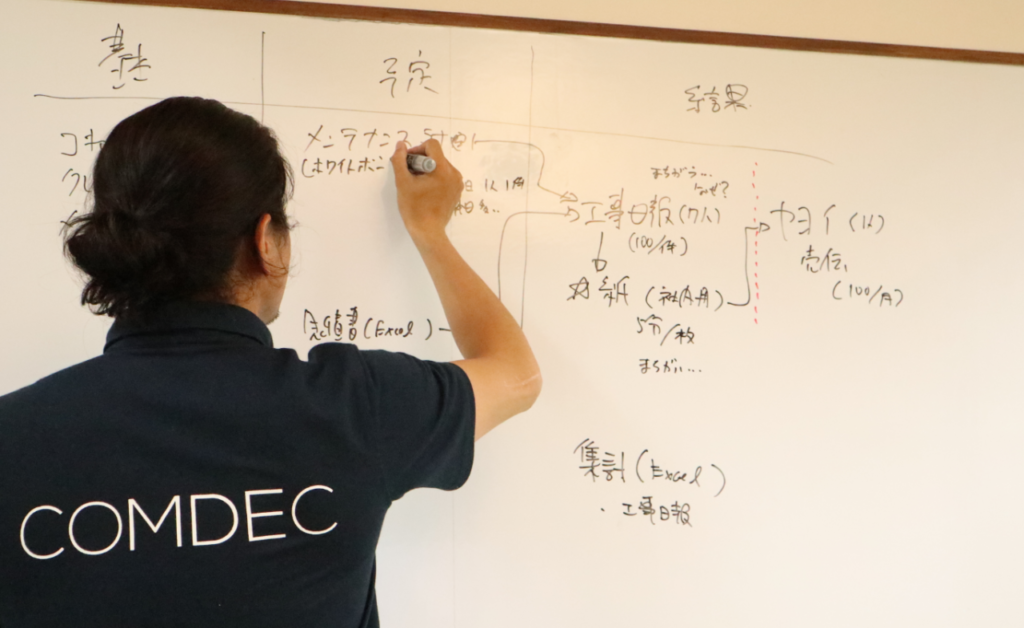 基本
予定
結果
メンテナンス
(ホワイトボ
見積書(Excel)
まちがう...
なぜ?
工事日報(7人)
(100/件)
別紙(社内用)
5分/枚
まちがい...
ヤヨイ(1人)
売伝
(100/月)
集計(Excel)
・工事日報
COMDEC